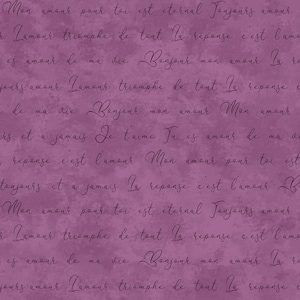 Mon amour pour toi est eternal Toujours amour
amour L'amour triomphe de tout La reponse c'est l'amour
es amour de ma vie Bonjour mon amour Mon
jours amour L'amour triomphe de tout La reponse c'est
de ma vie Bonjour mon amour Mon amour
rs et a jamais Je t'aime Tu es amour de ma
reponse c'est l'amour Mon amour pour toi est
toujours et a jamais La reponse c'est l'amour
Mon amour pour toi est eternal Toujours amour
L'amour triomphe de tout La reponse c'est l'amour
es amour de ma vie Bonjour mon amour Mon
amour L'amour triomphe de tout La reponse c'est